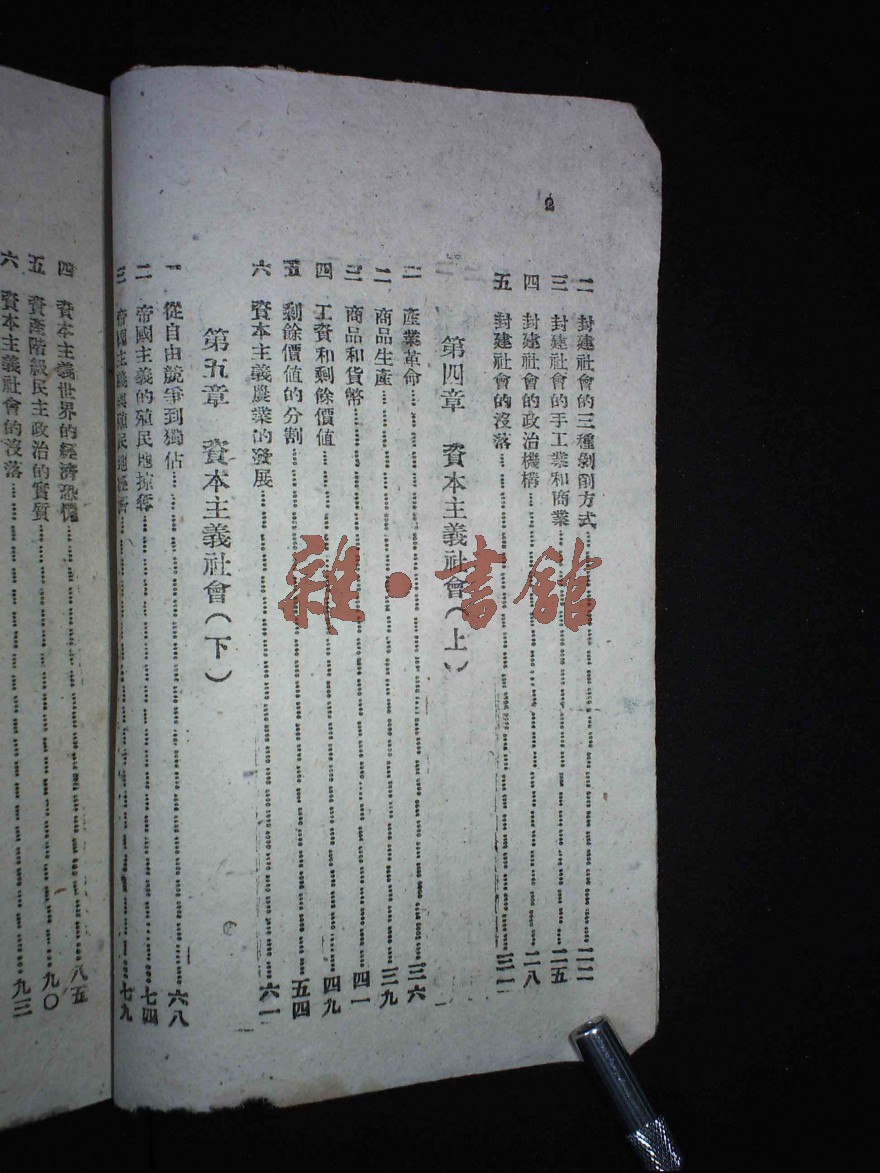 2
二 封建社會的三種剝削方式……二二
三 封建社會的手工業和商業……二五
四 封建社會的政治機構……二八
五 封建社會的沒落……三一
第四章 資本主義社會（上）
一 產業革命……三六
二 商品生產……三九
三 商品和貨幣……四一
四 工資和剩餘價值……四九
五 剩餘價值的分割……五四
六 資本主義農業的發展……六一
第五章 資本主義社會（下）
一 從自由競爭到獨佔……六八
二 帝國主義的殖民地掠奪……七四
三 帝國主義與殖民地經濟……七九
四 資本主義世界的經濟恐慌……八五
五 資產階級民主政治的實質……九〇
六 資本主義社會的沒落……九三
雜·書館